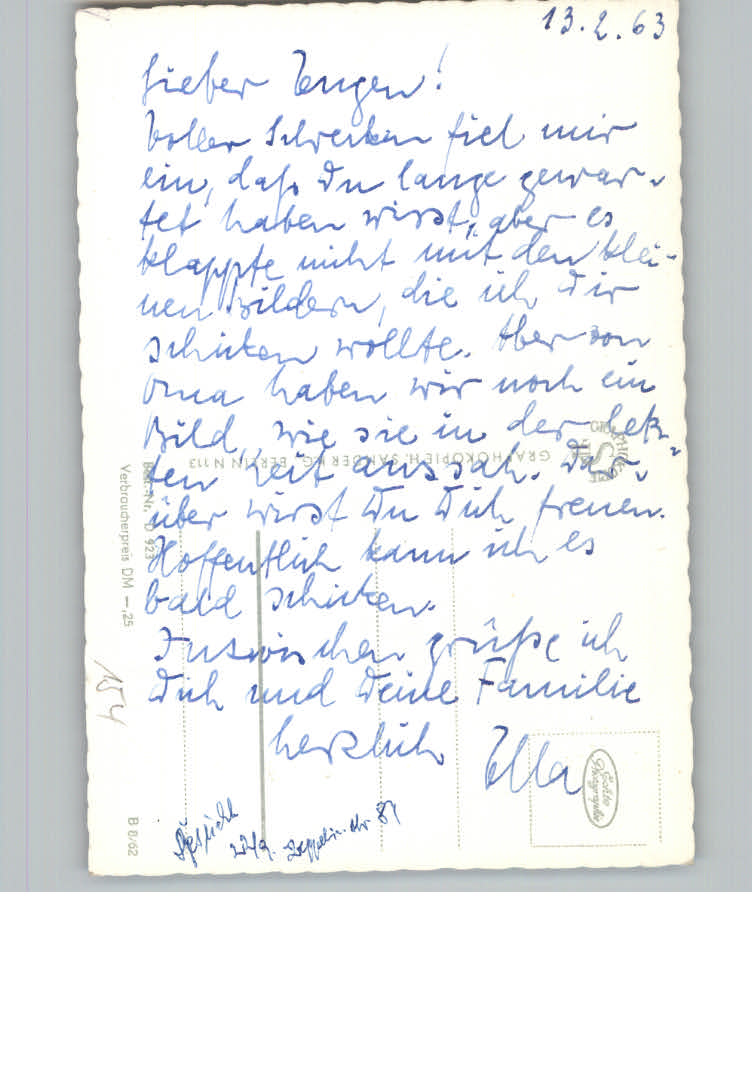 13.2.63
Lieber Eugen!
Voller Schrecken fiel mir
ein, daß Du lange gewar-
tet haben wirst, aber es
klappte nicht mit den klei-
nen Bildern, die ich Dir
schicken wollte. Aber von
Oma haben wir noch ein
Bild, wie sie in der letz-
ten Zeit aussah. Dar-
über wirst Du Dich freuen.
Hoffentlich kann ich es
bald schicken.
Inzwischen grüße ich
Dich und Deine Familie
herzlich Ella
Zeppelin-str 89
154
GRAPHOKOPIE H. SANDER KG. BERLIN N 113
Best.-Nr. D 923
Verbraucherpreis DM -,25
B 8/62
Echte
Photographie